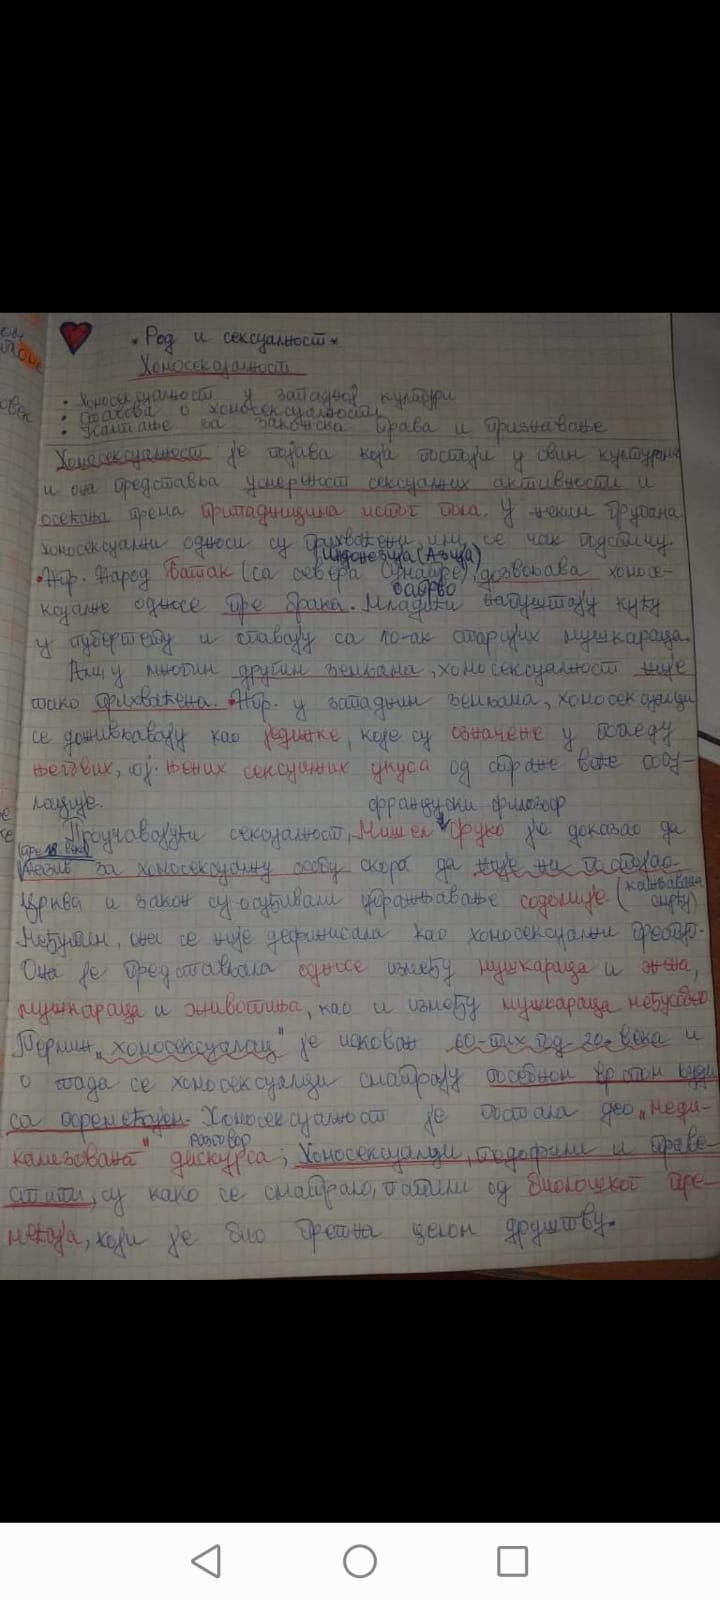 • Род и сексуалност •
Хомосексуалност
• Хомосексуалност у западној култури
• Ставови о хомосексуалности
• Кампање за законска права и признавање
Хомосексуалност је појава која постоји у свим културама
и она представља усмереност сексуалних активности и
осећања према припадницима истог пола. У неким групама
хомосексуални односи су прихваћени или се чак подстичу.
Индонезија (Азија)
• Нпр. Народ Батак (са севера Суматре), дозвољава хомосе-
одавно
ксуалне односе пре брака. Младићи напуштају кућу
у пубертету и спавају са 10-ак старијих мушкараца.
Али, у многим другим земљама, хомосексуалност није
тако прихваћена. • Нпр. у западним земљама, хомосексуалци
се доживљавају као јединке, које су означене у погледу
његових, тј. њених сексуалних укуса од стране веће попу-
лације.
француски филозоф
Проучавајући сексуалност, Мишел Фуко је доказао да
(пре 18. века)
назив за хомосексуалну особу скоро да није ни постојао.
Црква и закон су осуђивали упражњавање содомије. (кажњавана
смрћу)
Међутим, она се није дефинисала као хомосексуални преступ.
Она је представљала односе између мушкараца и жена,
мушкараца и животиња, као и између мушкараца међусобно.
Термин „хомосексуалац" је искован 60-тих год. 20. века и
о тада се хомосексуалци сматрају посебном врстом људи
са поремећајем. Хомосексуалност је постала део „меди-
разговор
кализованог" дискурса; Хомосексуалци, педофили и траве-
стити, су како се сматрало, патили од биолошког поре-
мећаја, који је био претња целом друштву.